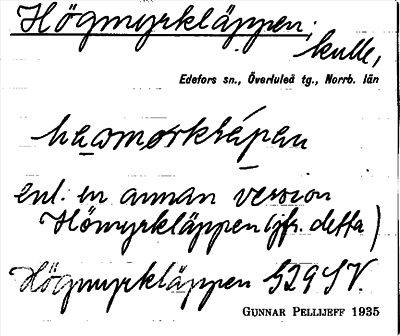 Högmyrkläppen;
kulle,
Edefors sn., Överluleå tg., Norrb. län
enl. en annan version
Hömyrkläppen (jfr. detta)
Högmyrkläppen 529 SV.
GUNNAR PELLIJEFF 1935